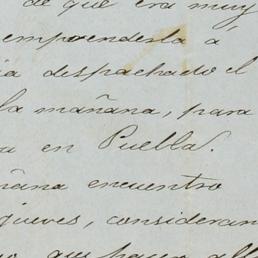 de que era muy
emprenderla á
despachado el
la mañana, para
en Puebla.
ñana encuentro
jueves, consideran
que hacer all